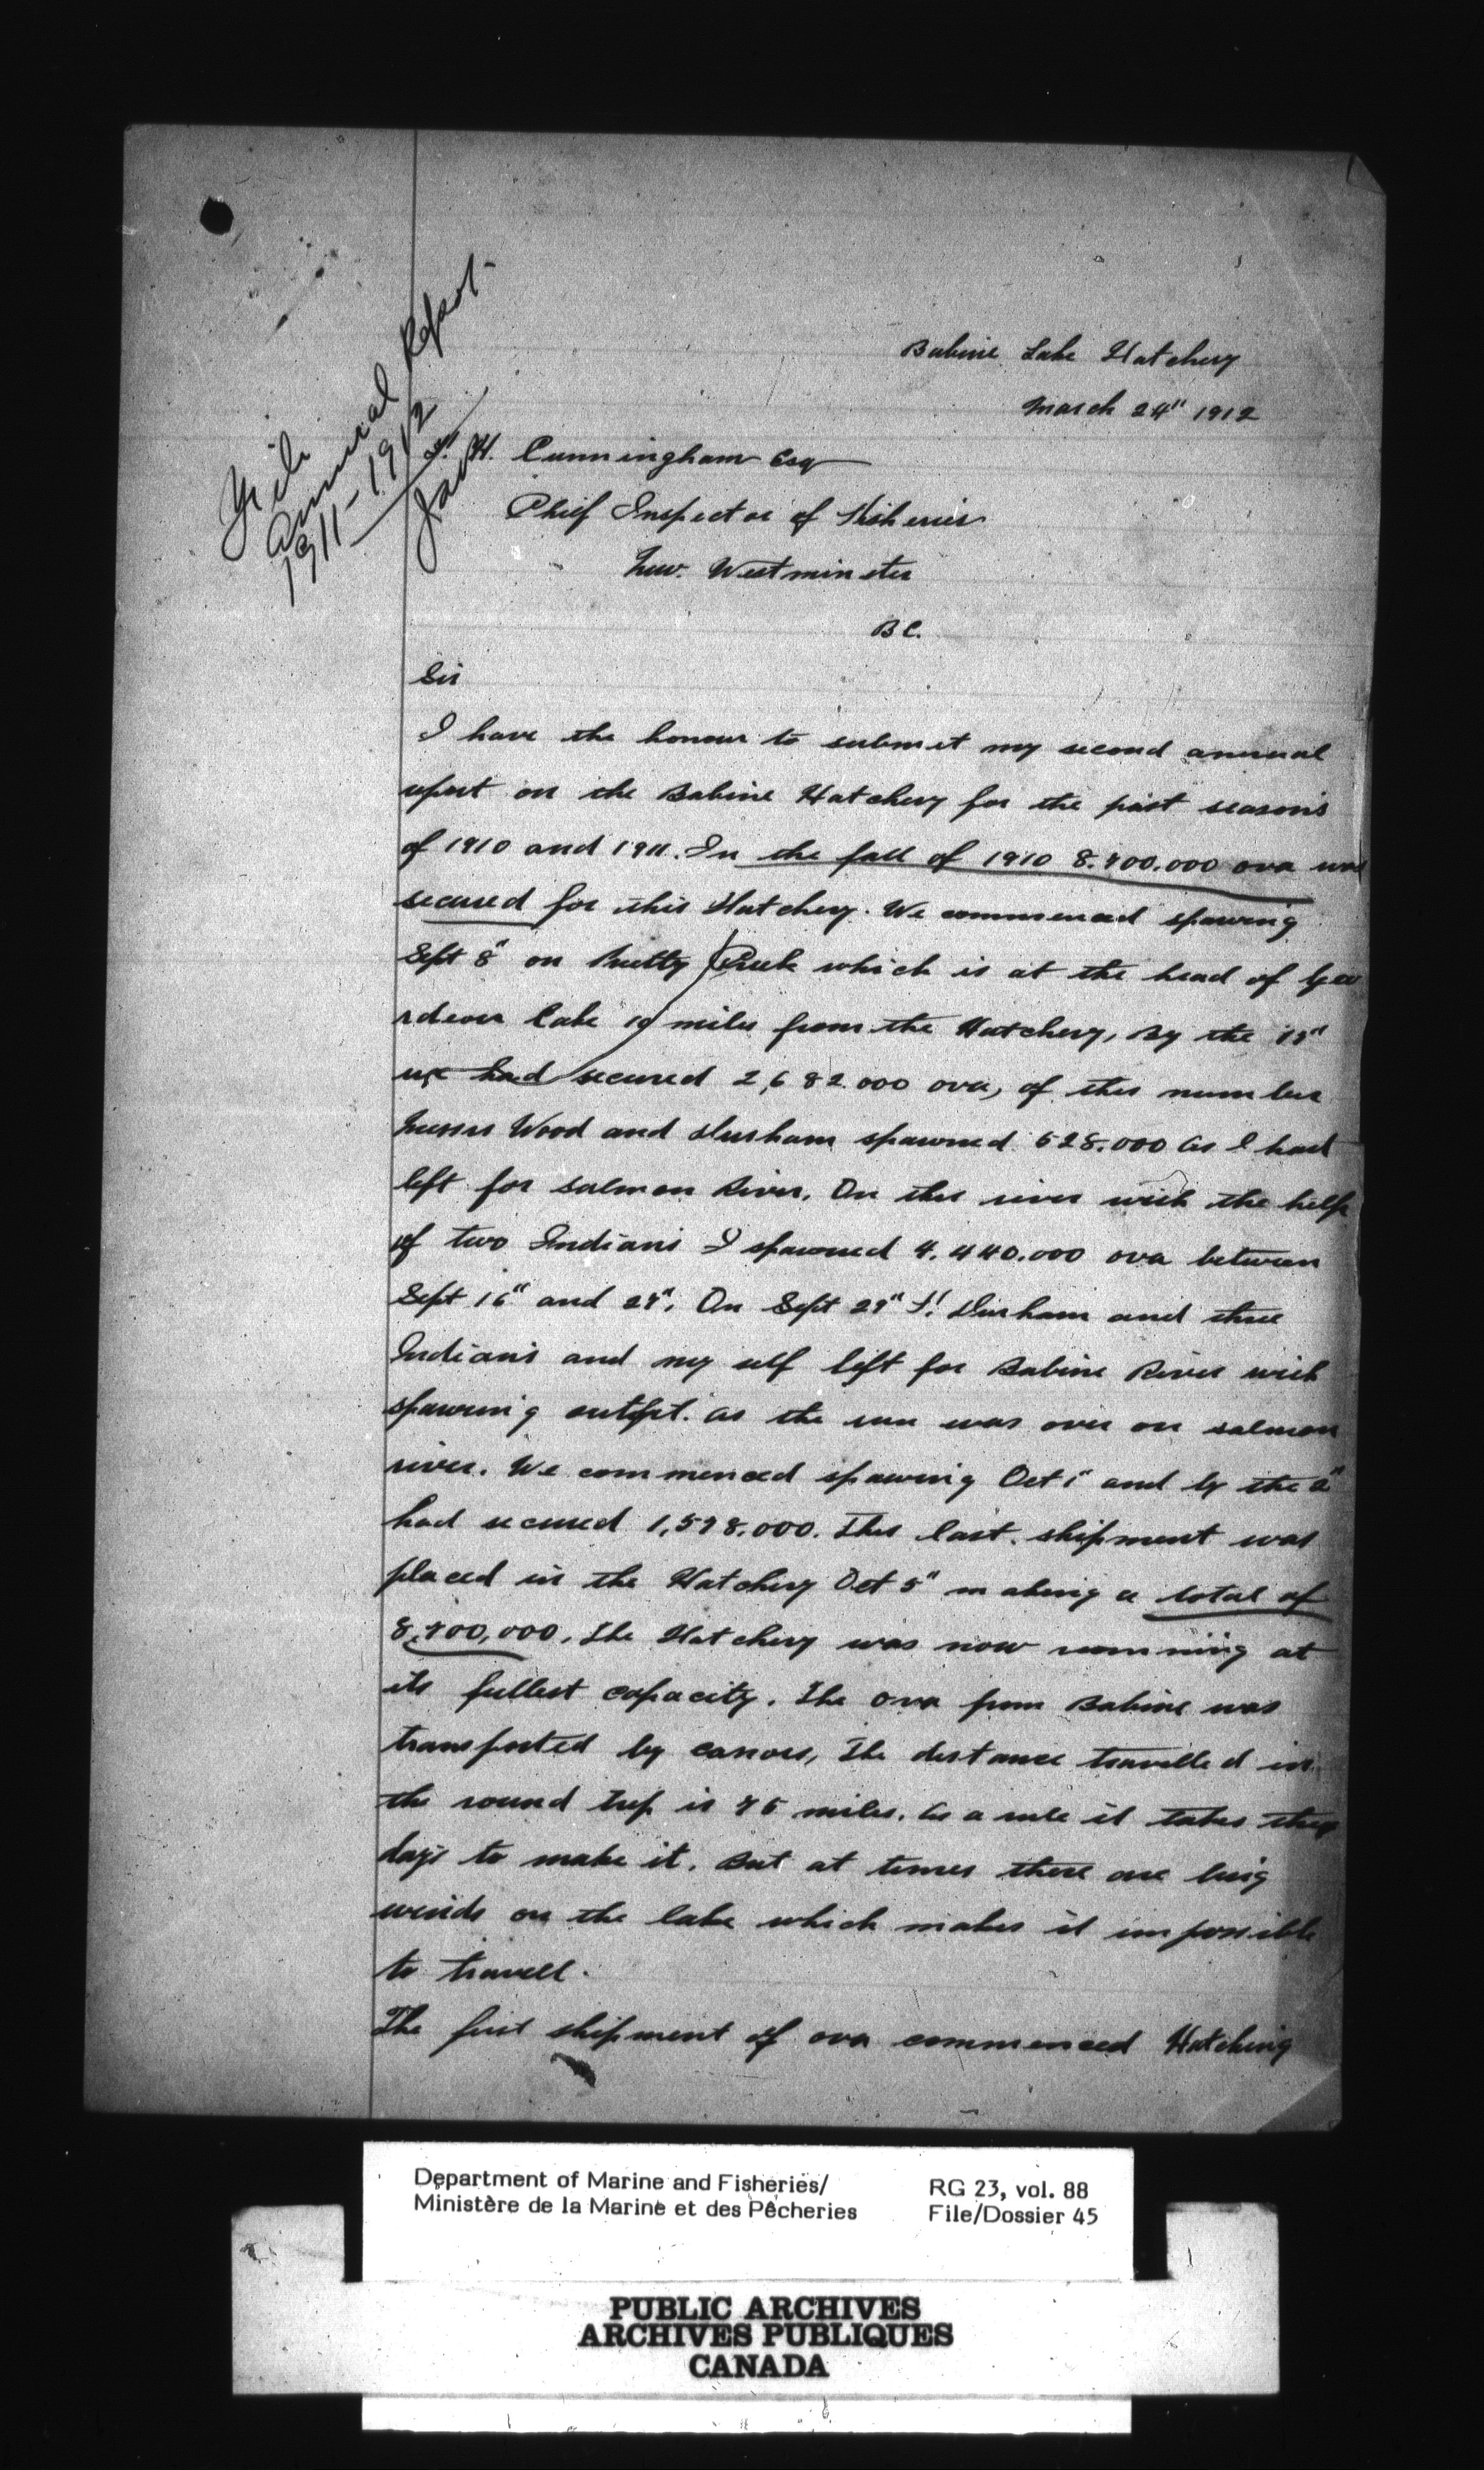 File
Annual Report
1911-1912
Babine Lake Hatchery
March 24" 1912
H. Cunningham Esq
Chief Inspector of Fisheries
New. Westminster
B C.
Sir
I have the honour to submit my second annual
report on the Babine Hatchery for the past season's
of 1910 and 1911. In the fall of 1910 8.700.000 ova was
secured for this Hatchery. We commenced spawing
Sept 8" on Creek which is at the head of
Lake 19 miles from the Hatchery, By the 15"
we had secured 2,682.000 ova, of this number
Messrs Wood and Durham spawned 528.000 as I had
left for Salmon River. On this river with the help
of two Indians I spawned 4.440.000 ova between
Sept 16" and 28". On Sept 29" F. Durham and three
Indians and my self left for Babine River with
spawning outfit. as the run was over on salmon
river. We commenced spawing Oct 1" and by the 2"
had secured 1,578.000. This last. shipment was
placed in the Hatchery Oct 5" making a total of
8,700,000. The Hatchery was now running at
its fullest capacity. The ova from Babine was
transported by canoes, The distance travelled in
the round trip is 75 miles. As a rule it takes three
days to make it. But at times there are
winds on the lake which makes it impossible
to travell.
The first shipment of ova commenced Hatching
Department of Marine and Fisheries/
Ministère de la Marine et des Pêcheries
RG 23, vol. 88
File/Dossier 45
PUBLIC ARCHIVES
ARCHIVES PUBLIQUES
CANADA